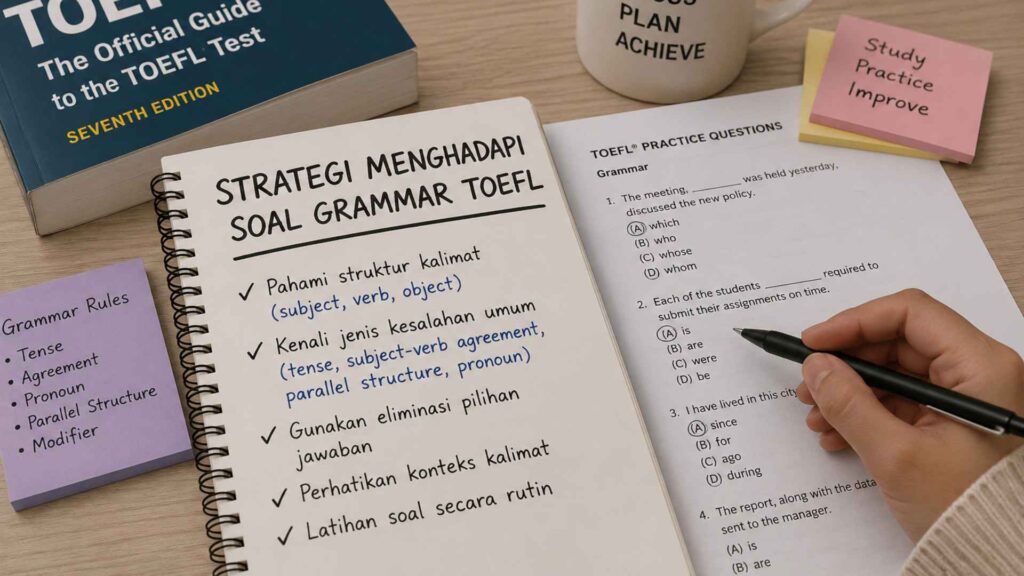 TOEFL
The Official Guide
to the TOEFL Test
SEVENTH EDITION
PLAN
ACHIEVE
Study
Practice
Improve
Grammar Rules
• Tense
• Agreement
• Pronoun
• Parallel Structure
• Modifier
STRATEGI MENGHADAPI
SOAL GRAMMAR TOEFL
✓ Pahami struktur kalimat
(subject, verb, object)
✓ Kenali jenis kesalahan umum
(tense, subject-verb agreement,
parallel structure, pronoun)
✓ Gunakan eliminasi pilihan
jawaban
✓ Perhatikan konteks kalimat
✓ Latihan soal secara rutin
TOEFL® PRACTICE QUESTIONS
Grammar
1. The meeting, ________ was held yesterday,
discussed the new policy.
(A) which
(B) who
(C) whose
(D) whom
2. Each of the students ________ required to
submit their assignments on time.
(A) is
(B) are
(C) were
(D) be
3. I have lived in this city
(A) since
(B) for
(C) ago
(D) during
4. The report, along with the data
sent to the manager.
(A) is
(B) are